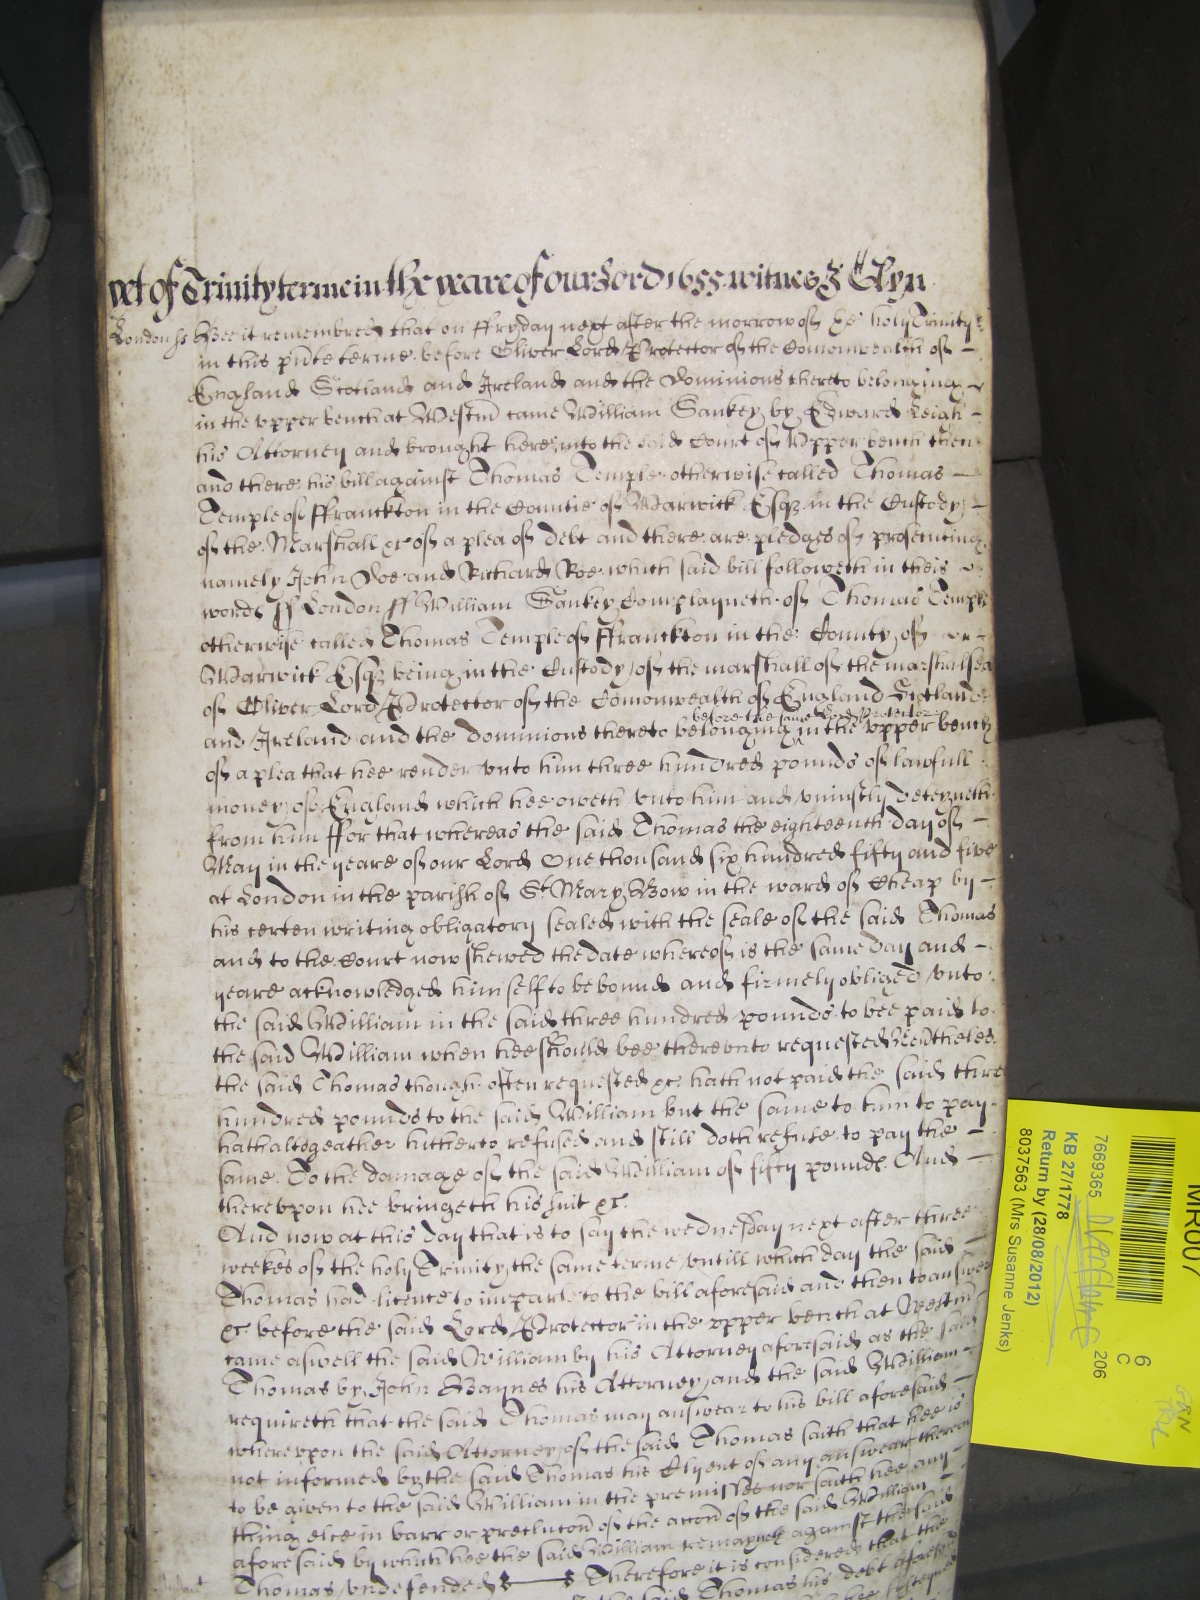 yet of Trinity terme in the yeare of our Lord 1655 witnes J Glyn
London ss Bee it remembred that on ffryday next after the morrow of ye holy Trinity
in this p'nte terme before Oliver Lord Protector of the Comonwealth of
England Scotland and Ireland and the Dominions thereto belonging
in the vpper bench at Westm came William Sankey by Edward Leigh
his Attorney and brought here into the said Court of Vpper bench then
and there his bill against Thomas Temple otherwise called Thomas
Temple of ffranckton in the Countie of Warwick Esqz in the Custody
of the Marshall &c of a plea of debt and there are pledges of prosecuting
namely John Doe and Richard Roe which said bill followeth in theis
words ss London ss William Sankey Complayneth of Thomas Temple
otherwise called Thomas Temple of ffranckton in the County of
Warwick Esqz being in the Custody of the marshall of the marshalsea
of Oliver Lord Protector of the Comonwealth of England Scotland
before the same Lord Protector
and Ireland and the dominions thereto belonging in the vpper bench
of a plea that hee render vnto him three hundred pounds of lawfull
money of England which hee oweth vnto him and vniustly deteyneth
from him ffor that whereas the said Thomas the eighteenth day of
May in the yeare of our Lord One thousand six hundred fifty and five
at London in the parish of St Mary Bow in the ward of Cheap by
his certen writing obligatory sealed with the seale of the said Thomas
and to the Court now shewed the date whereof is the same day and
yeare acknowledged himself to be bound and firmely obliged vnto
the said William in the said three hundred pounds to bee paid to
the said William when hee should bee therevnto requested Neu'theles
the said Thomas though often requested &c hath not paid the said three
hundred pounds to the said William but the same to him to pay
hath altogeather hitherto refused and still doth refuse to pay the
same To the damage of the said William of fifty pounds And
therevpon hee bringeth his suit &c
And now at this day that is to say the wednesday next after three
weekes of the holy Trinity the same terme vntill which day the said
Thomas had licence to imparle to the bill aforesaid and then to answer
&c before the said Lord Protector in the vpper bench at Westm
came aswell the said William by his Attorney aforesaid as the said
Thomas by John Baynes his Attorney and the said William
requireth that the said Thomas may answear to his bill aforesaid
wherevpon the said Attorney of the said Thomas saith that hee is
not informed by the said Thomas his Clyent of any answear thereon
to be given to the said William in the premisses nor saith hee any
thing else in barr or preclucon of the accon of the said William
aforesaid by which hee the said William remaynes against the said
Thomas vndefended Therefore it is considered that the
the said Thomas his debt aforesaid
MR007
6
C
7669365
206
KB 27/1778
Return by (28/08/2012)
8037563 (Mrs Susanne Jenks)